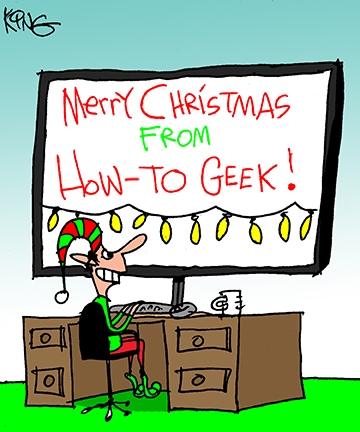 KING
MERRY CHRISTMAS
FROM
HOW-TO GEEK!